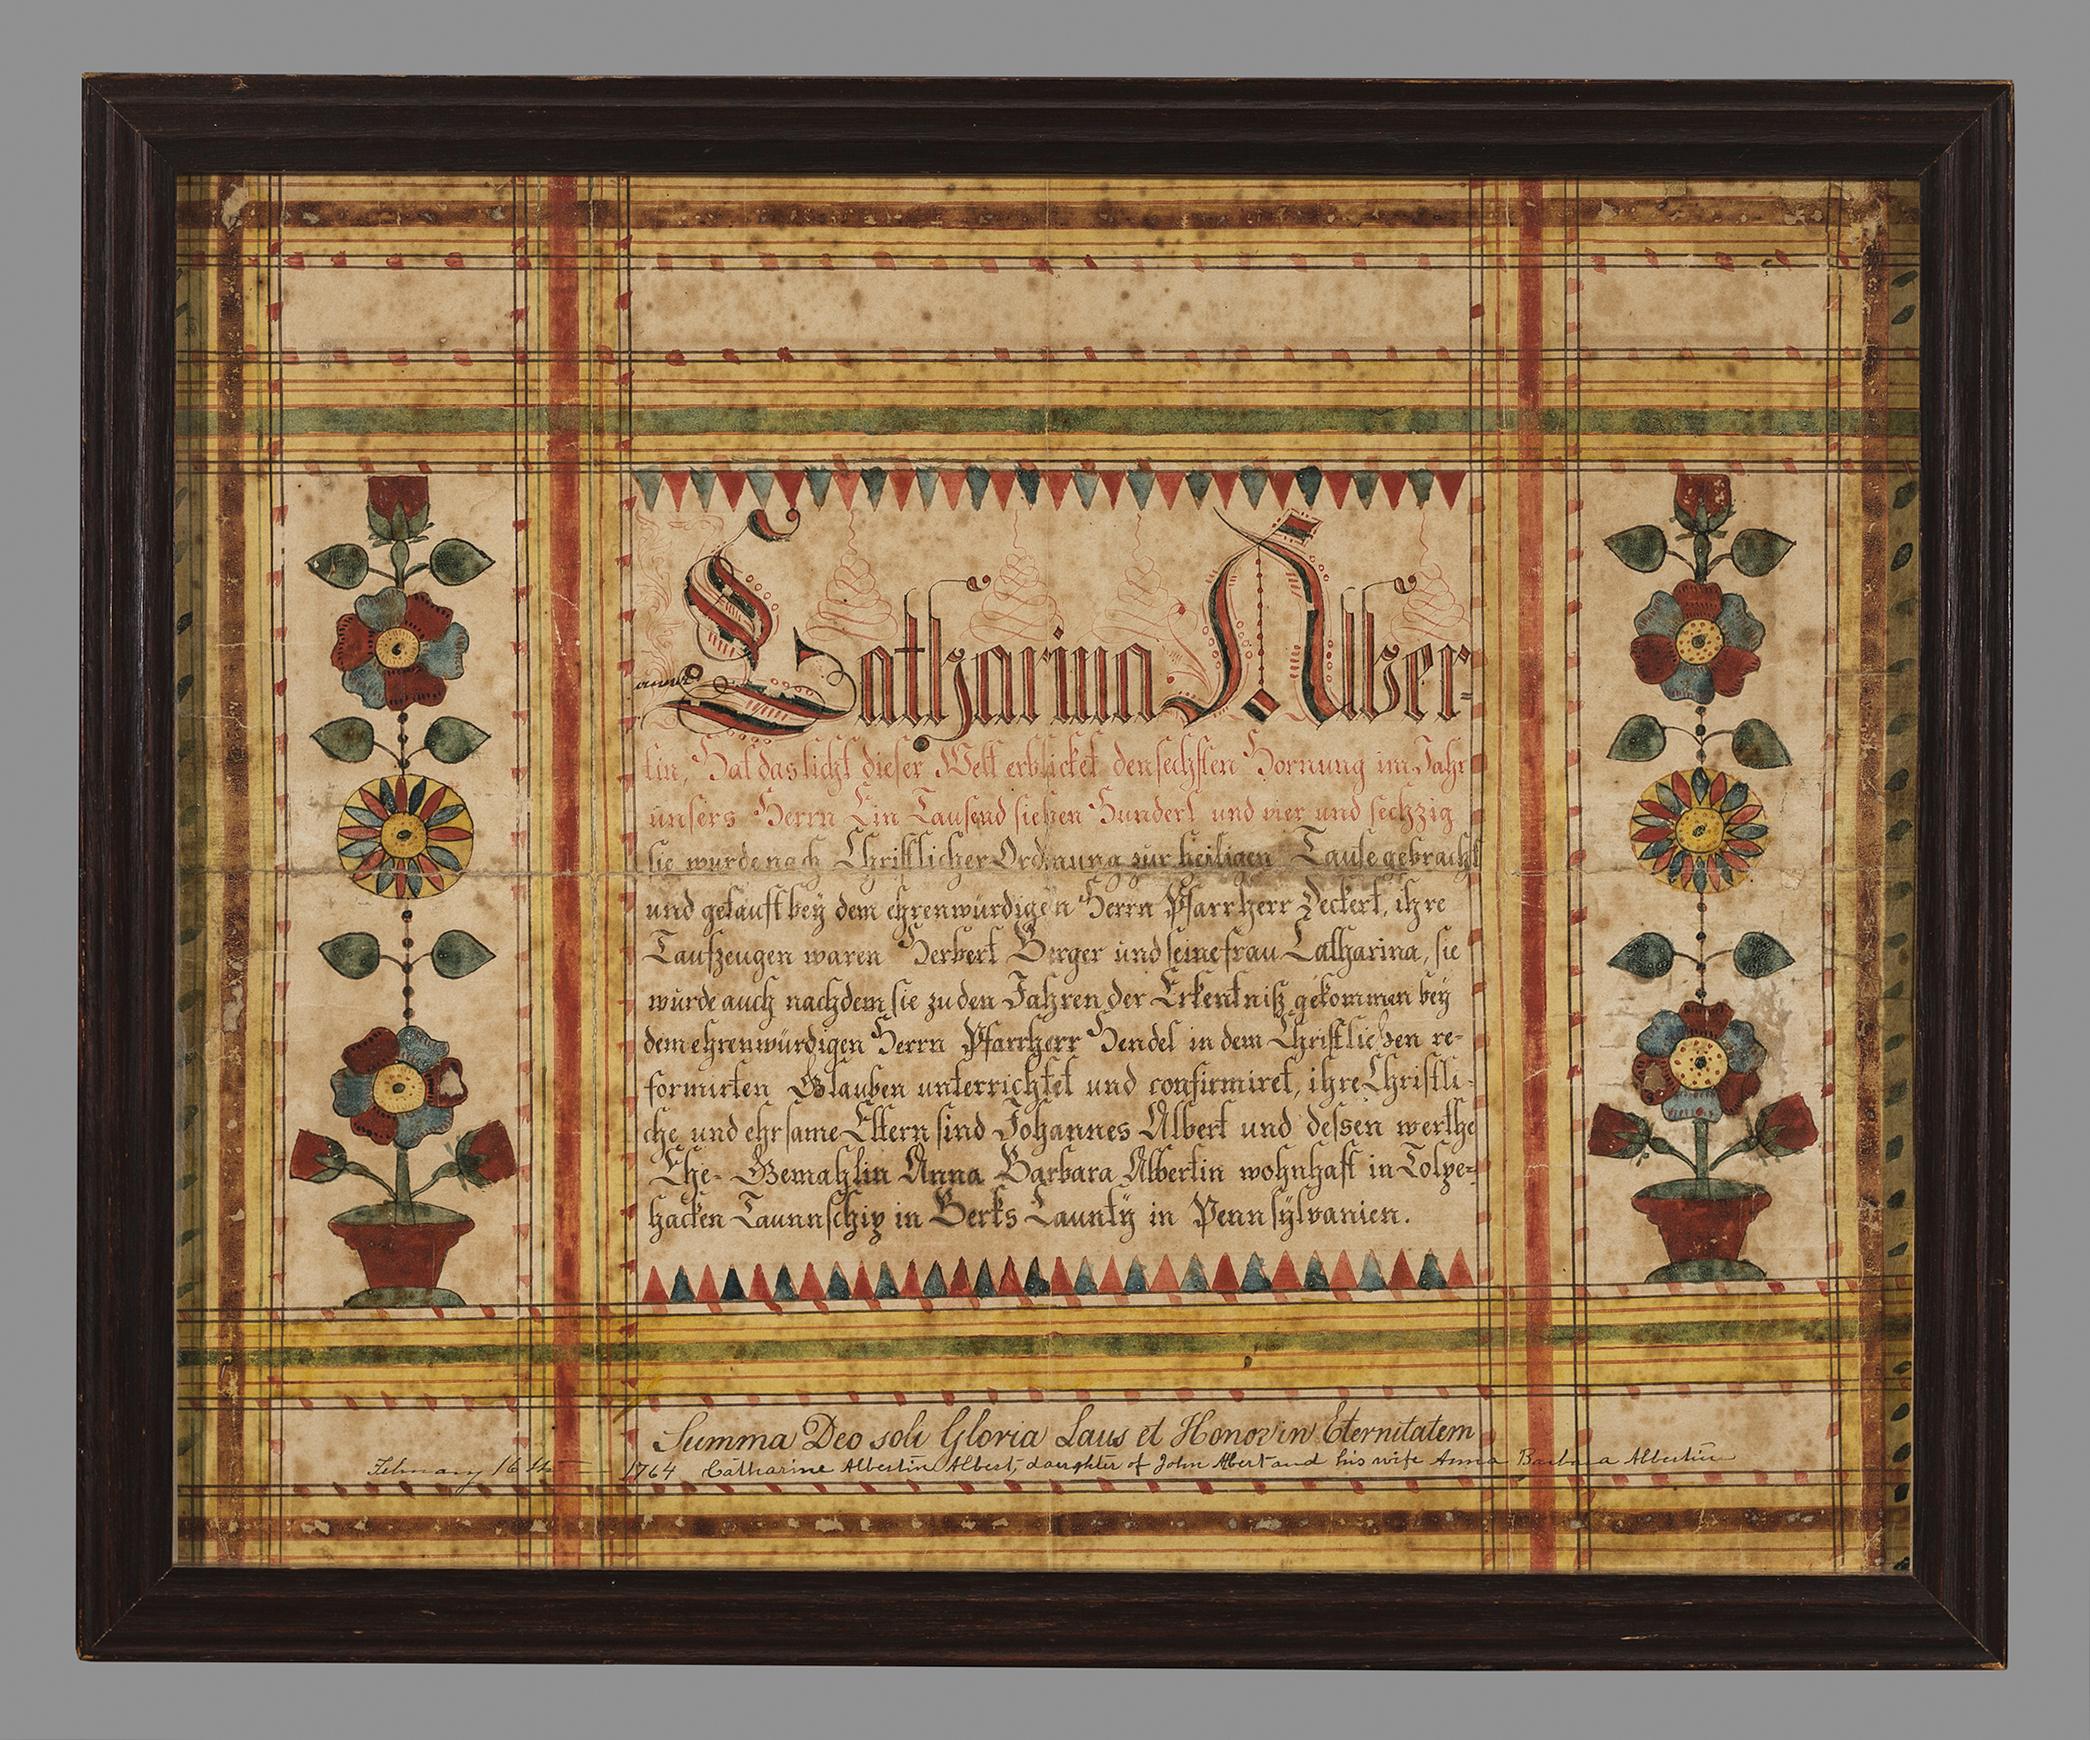 Catharina Alber-
tin, Hat das licht dieser Welt erblicket den sechsten Hornung im Jahr
unsers Herrn Ein Tausend sieben Hundert und vier und sechzig
sie wurde nach Christlicher Ordnung zur heiligen Taufe gebracht
und getauft bey dem ehrenwürdigen Herrn Pfarrherr Deckert, ihre
Taufzeugen waren Herbert Berger und seine frau Catharina, sie
wurde auch nachdem sie zu den Jahren der Erkentniß gekommen bey
dem ehrenwürdigen Herrn Pfarrherr Hendel in dem Christlichen re-
formirten Glauben unterrichtet und confirmiret, ihre Christli-
che und ehrsame Eltern sind Johannes Albert und dessen werthe
Ehe-Gemahlin Anna Barbara Albertin wohnhaft in Tolpe-
hacken Taunnschip in Berks Caunty in Pennsylvanien.
Summa Deo soli Gloria Laus et Honor in Eternitatem
February 16th 1764 Catharine Albertin Albert, daughter of John Albert and his wife Anna Barbara Albertin